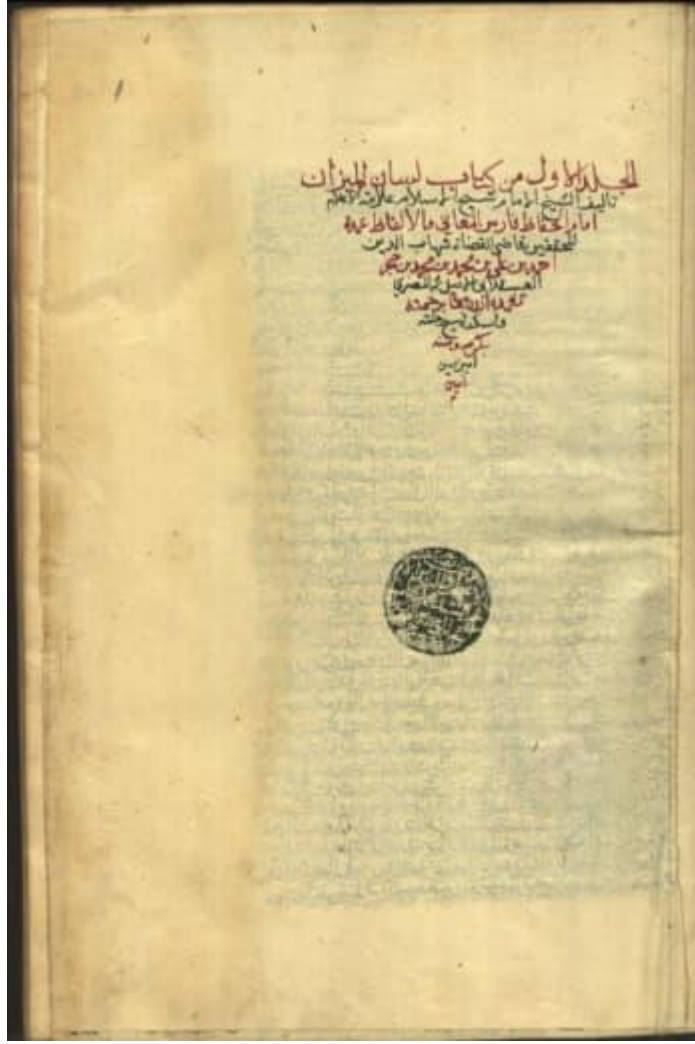 المجلد الاول من كتاب لسان الميزان
تاليف الشيخ الامام شيخ الاسلام علامة الانام
امام الحفاظ فارس المعاني والالفاظ عمدة
المحققين قاضي القضاة شهاب الدين
احمد بن علي بن محمد بن محمد بن حجر
العسقلاني الاصل المصري
تغمده الله تعالى برحمته
واسكنه فسيح جنته
بكرمه ومنه
امين
امين